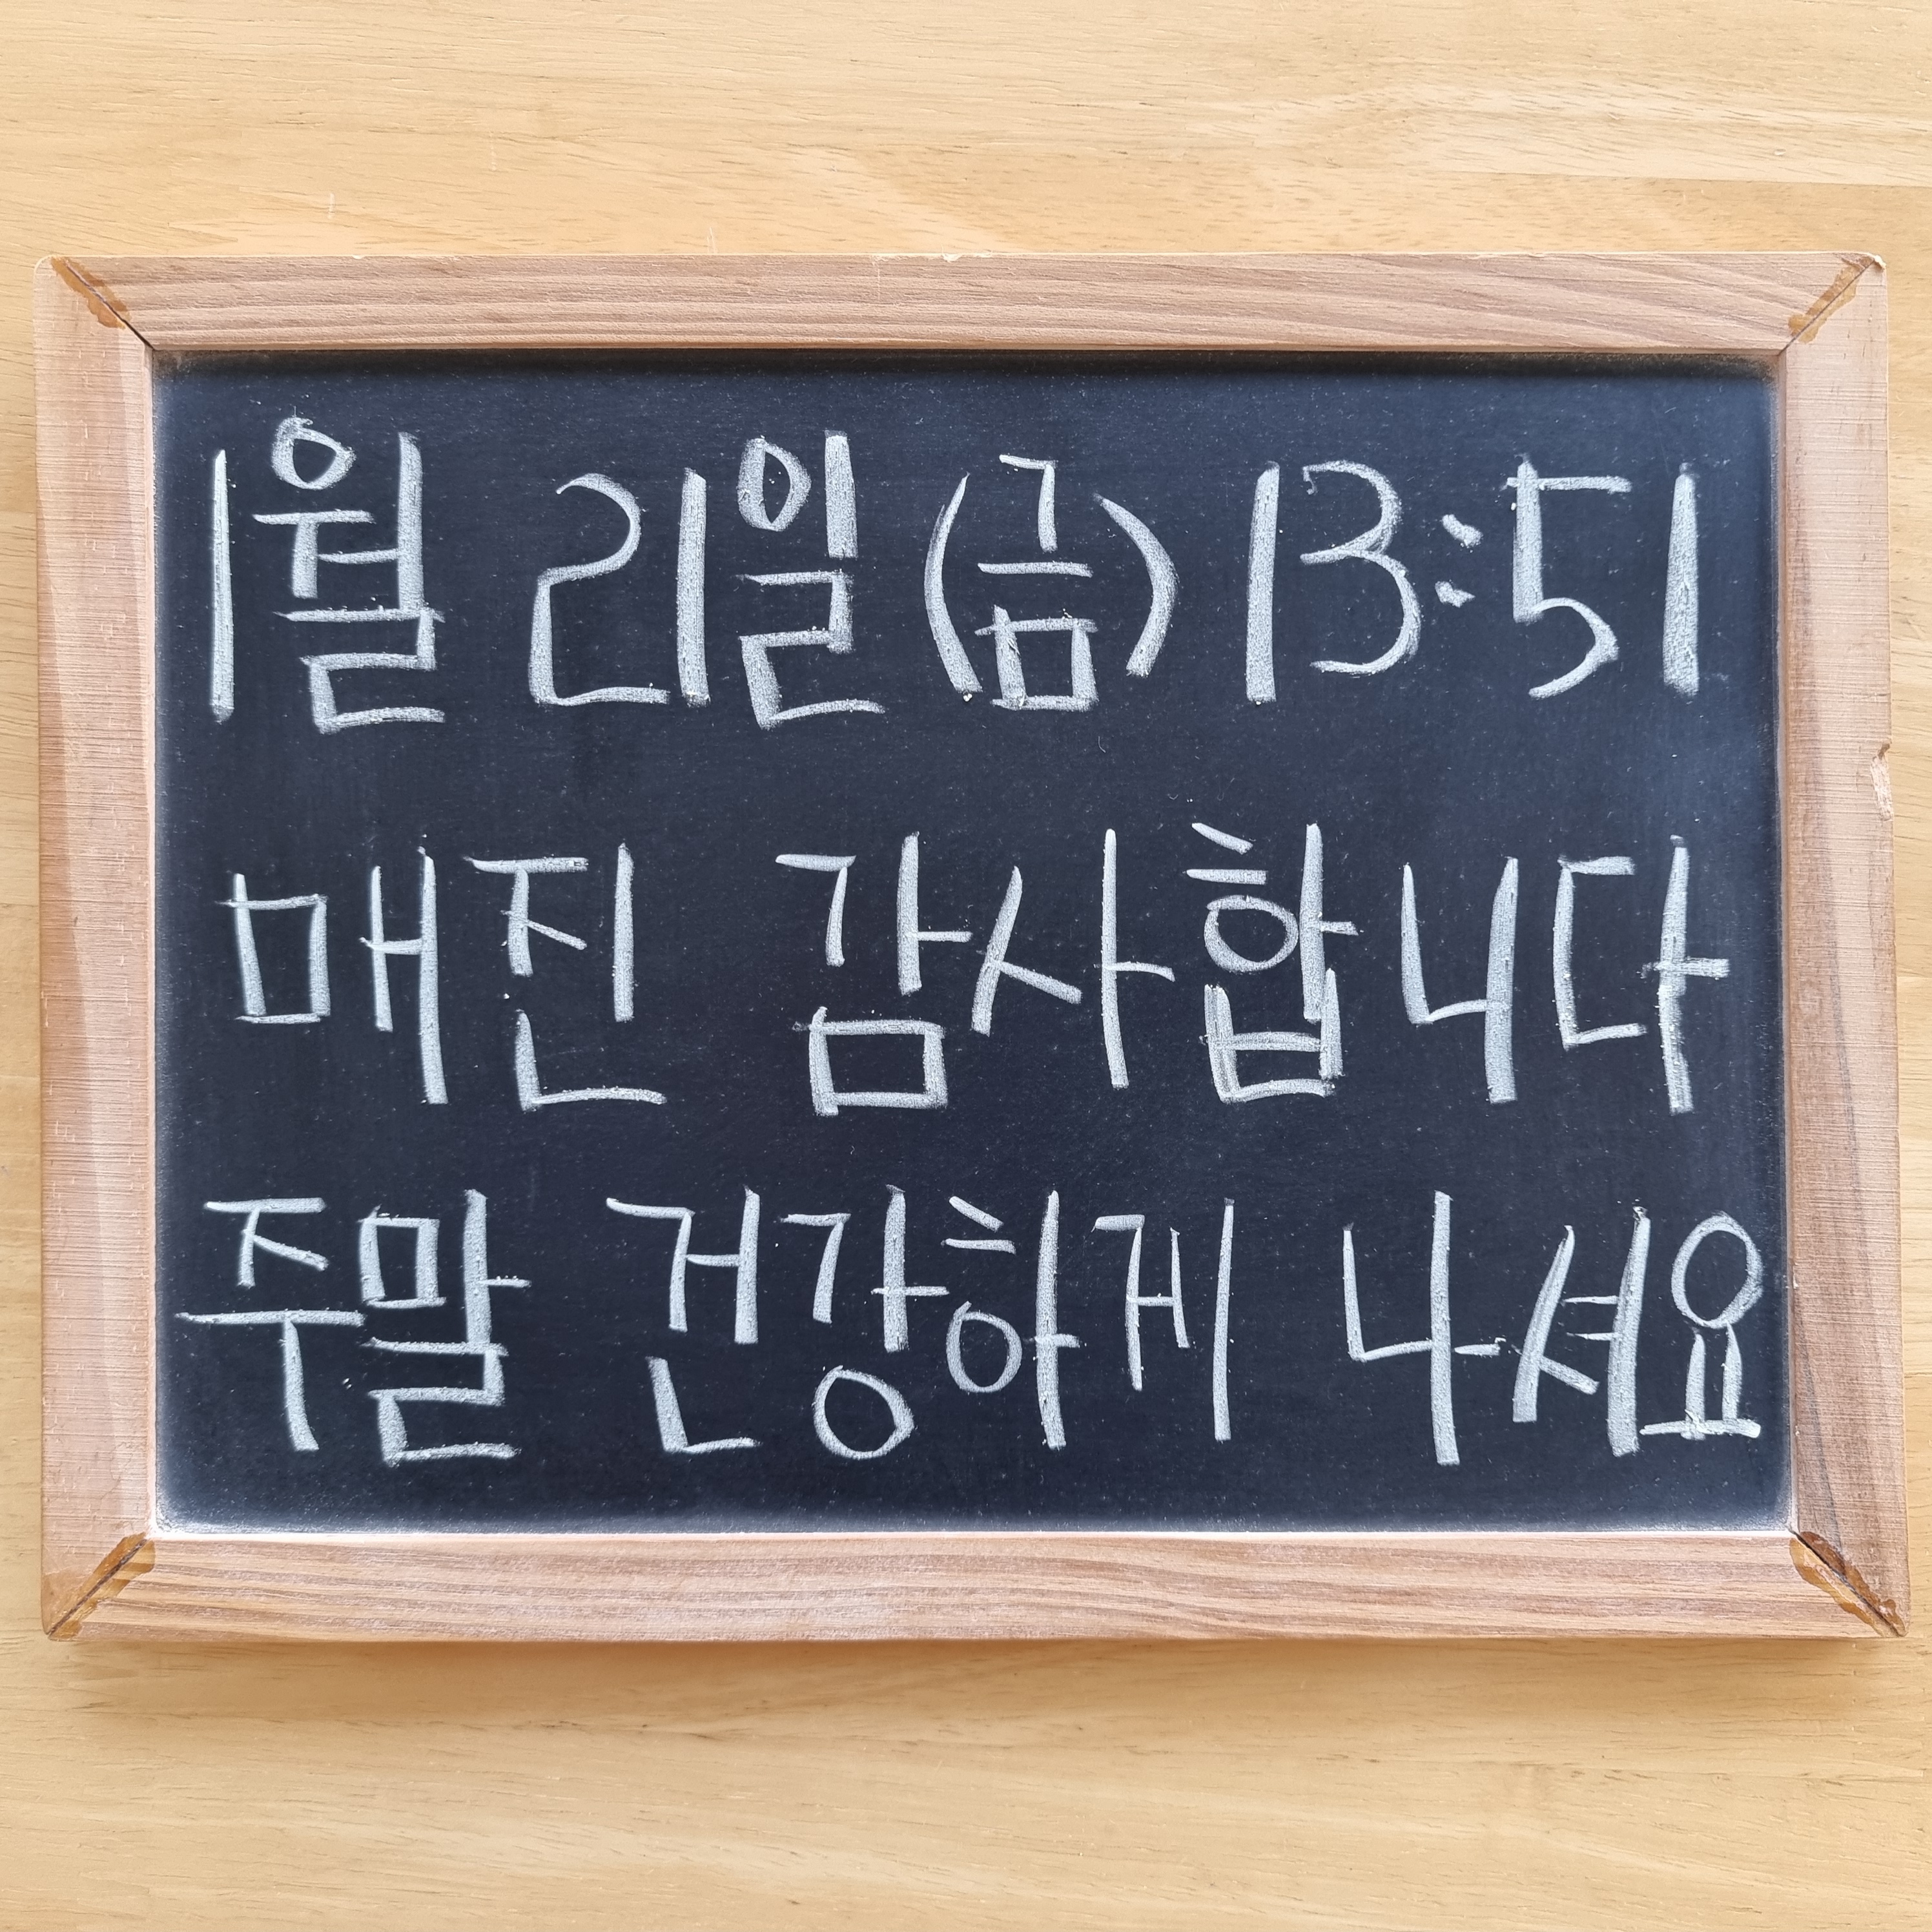 1월 21일(금) 13:51
매진 감사합니다
주말 건강하게 나셔요